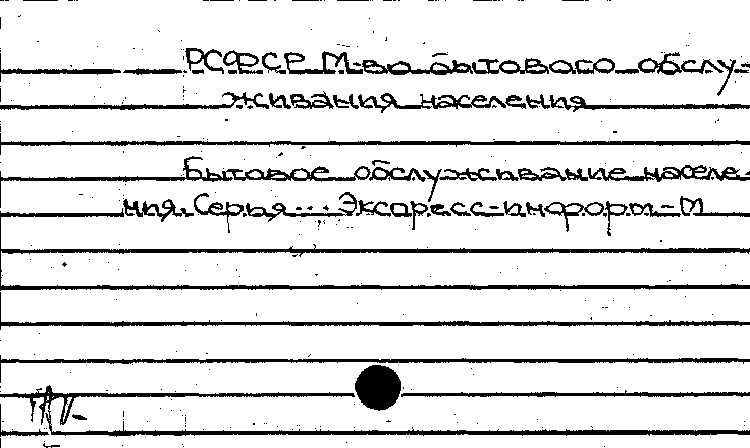 РСФСР М-во бытового обслу-
живания населения
Бытовое обслуживание населе-
ния. Серия... Экспресс-информ-М